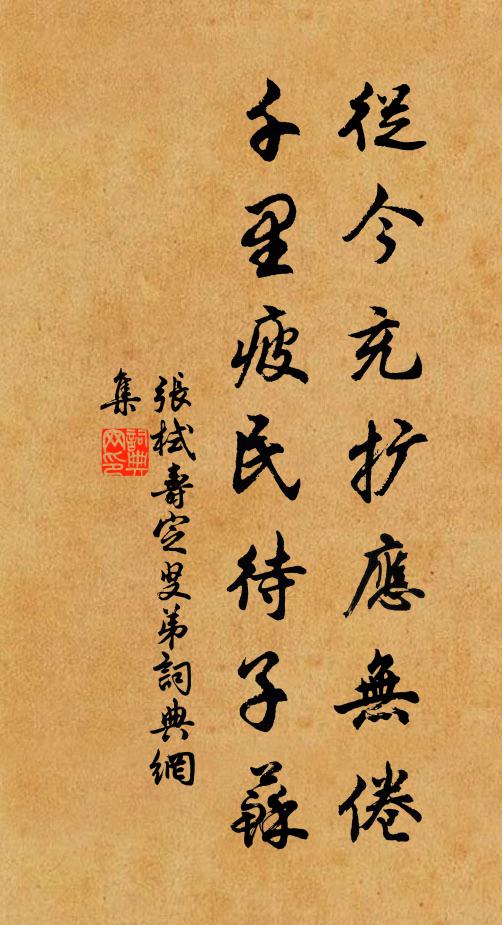 從今充扩應無倦
千里疲民待子蘇
張栻壽定叟弟詞典網
集
詞典網印